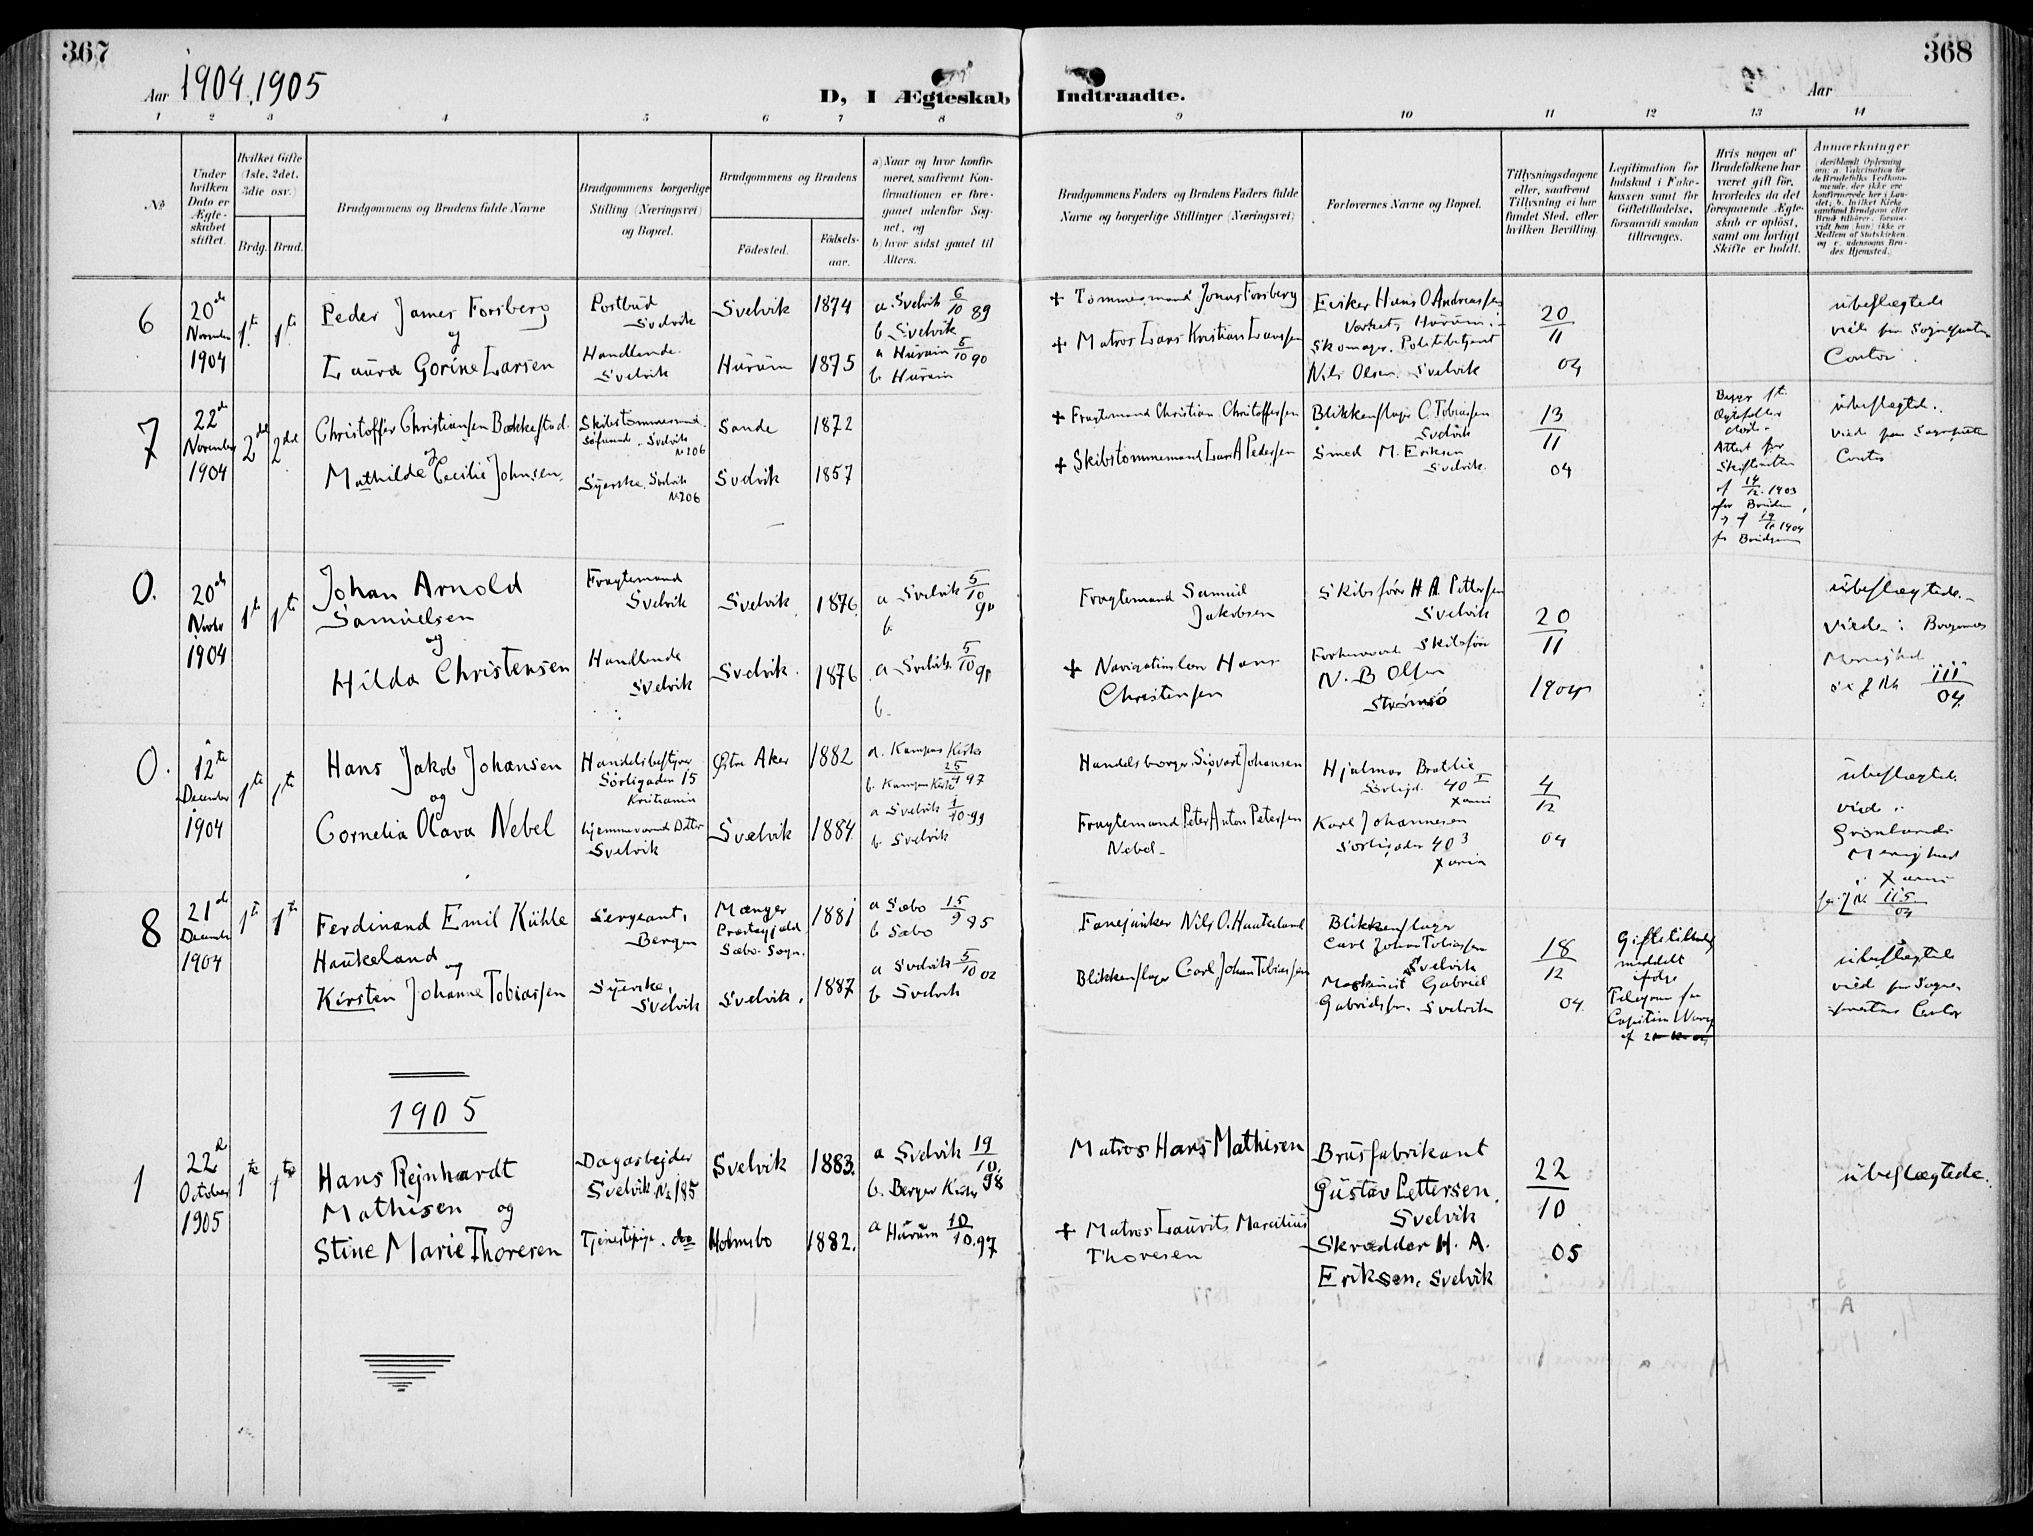 367
Aar 1904. 1905
D, I Ægteskab Indtraadte.
Aar
368
1 2 3 4 5 6 7 8 9 10 11 12 13 14
№
Under hvilken Dato er Ægteskabet stiftet.
Hvilket Gifte (1ste, 2det, 3die osv.)
Brdg. Brud.
Brudgommens og Brudens fulde Navne
Brudgommens borgerlige Stilling (Næringsvei) og Bopæl.
Brudgommens og Brudens
Fødested.
Fødselsaar.
a) Naar og hvor konfirmeret, saafremt Konfirmationen er foregaaet udenfor Sognet, og
b) hvor sidst gaaet til Alters.
Brudgommens Faders og Brudens Faders fulde Navne og borgerlige Stillinger (Næringsvei)
Forlovernes Navne og Bopæl.
Tillysningsdagene eller, saafremt Tillysning ei har fundet Sted, efter hvilken Bevilling.
Legitimation for Indskud i Enkekassen samt for Giftetilladelse, forsaavidt saadan tiltrænges.
Hvis nogen af Brudefolkene har været gift før, hvorledes da det foregaaende Ægteskab er opløst, samt om lovligt Skifte er holdt.
Anmærkninger
6
20de November 1904
1te 1te
Peder James Forsberg
og
Laura Gorine Larsen
Postbud Svelvik
Handlende. Svelvik
Svelvik 1874
Hurum 1875
a Svelvik 6/10 89
b Svelvik
a Hurum 5/10 90
b. Hurum
+ Tømmermand Jonas Forsberg
+ Matros Lars Kristian Larssen
Hans O Andreassen
Hurum
Skomager. Politibetjent
Nils Olsen. Svelvik
20/11 04
ubeslægtede
Contor.
7
22de November 1904
2det 2det
Christoffer Christiansen Bækkestad
og
Mathilde Cecilie Johnsen.
Skibstømmermand. Svelvik № 206
Syerske. Svelvik № 206
Sande 1872
Svelvik 1857
+ Fragtemand Christian Christoffersen
+ Skibstømmermand Lars A Pedersen
Blikkenslager C. Tobiassen Svelvik
Smed M. Eriksen Svelvik.
13/11 04
Ægtefæller
Attest fra Skifteretten
af 14/12. 1903
for Bruden,
og af 19/11 1904
for Brudgom
ubeslægtede.
Contor
0.
20de Novbr 1904
1te 1te
Johan Arnold
Samuelsen
og
Hilda Christensen
Fragtemand Svelvik
Handlende Svelvik
Svelvik 1876
Svelvik. 1876
a Svelvik 5/10 90
b.
a Svelvik 5/10 91
b.
Fragtemand Samuel Jakobsen
+ Navigationslærer Hans Christensen
Skibsfører H A Pettersen Svelvik
Skibsfører
N. B Olsen
Strømsø
20/11 1904
ubeslægtede.
Viede i Bragernes
Menighed
111/04
0.
12te December 1904
1te 1te
Hans Jakob Johansen
og
Cornelia Olava Nebel
Handelsbestyrer
Sørligaden 15
Kristiania
hjemmeværende Datter
Svelvik
Østre Aker 1882
Svelvik 1884
a. Kampens Kirke
b. Kampens Kirke 25/4 97
a Svelvik 1/10 99
b Svelvik
Handelsborger Sigvart Johansen
Fragtemand Peter Anton Petersen Nebel
Hjalmar Bratlie
Sørligd. 40 I Xania
Karl Johannesen
Sørligaden 40 3 Xania
4/12 04
ubeslægtede
viede i
Grønlands
Menighed
i Xania
115/04
8
21de December 1904
1te 1te
Ferdinand Emil Kühle
Haukeland og
Kirsten Johanne Tobiassen
Sergeant, Bergen
Syerske, Svelvik
Manger
Præstegjæld
Sæbø Sogn. 1881
Svelvik, 1887
a Sæbø 15/9 95
b Sæbø
a Svelvik 5/10 02
b Svelvik
Fanejunker Nils O. Haukeland
Blikkenslager Carl Johan Tobiassen
Blikkenslager
Carl Johan Tobiassen
Svelvik
Maskinist Gabriel
Gabrielsen. Svelvik
18/12 04
Giftetilladelse
meddelt
ifølge
Telegram fra
Capitain
af
ubeslægtede
Contor
1905
1
22de October 1905
1te 1te
Hans Rejnhardt
Mathisen og
Stine Marie Thoresen
Dagarbejder
Svelvik № 185
Tjenestepige. do
Svelvik 1883.
Holmsbo 1882.
a Svelvik 19/10 98
b. Berger Kirke
a Hurum 10/10. 97
Matros Hans Mathisen
+ Matros Laurits Marcilius
Thoresen
Brusfabrikant
Gustav Pettersen,
Svelvik
Skrædder H. A.
Eriksen. Svelvik
22/10 05
ubeslægtede.